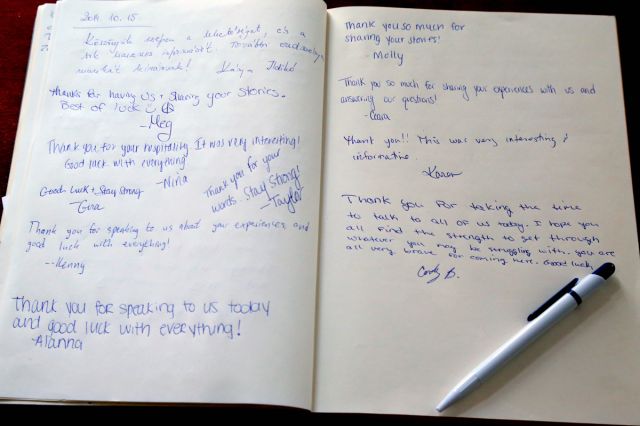 2014. 10. 15.
Köszönjük szépen a lehetőséget, és a
sok hasznos információt. További eredményes
munkát kívánunk! Ildikó
Thanks for having us + sharing your stories.
Best of luck
-Meg
Thank you for your hospitality. It was very interesting!
Good luck with everything!
-Nina
Thank you for your
words. Stay Strong!
-Taylor
Good Luck + Stay Strong
-Gina
Thank you for speaking to us about your experiences, and
good luck with everything!
--Kenny
Thank you for speaking to us today
and good luck with everything!
-Alanna
Thank you so much for
sharing your stories!
- Molly
Thank you so much for sharing your experiences with us and
answering our questions!
- Ceara
Thank you!! This was very interesting &
informative.
Karen
Thank you for taking the time
to talk to all of us today. I hope you
all find the strength to get through
whatever you may be struggling with. you are
all very brave for coming here. Good luck,
B.